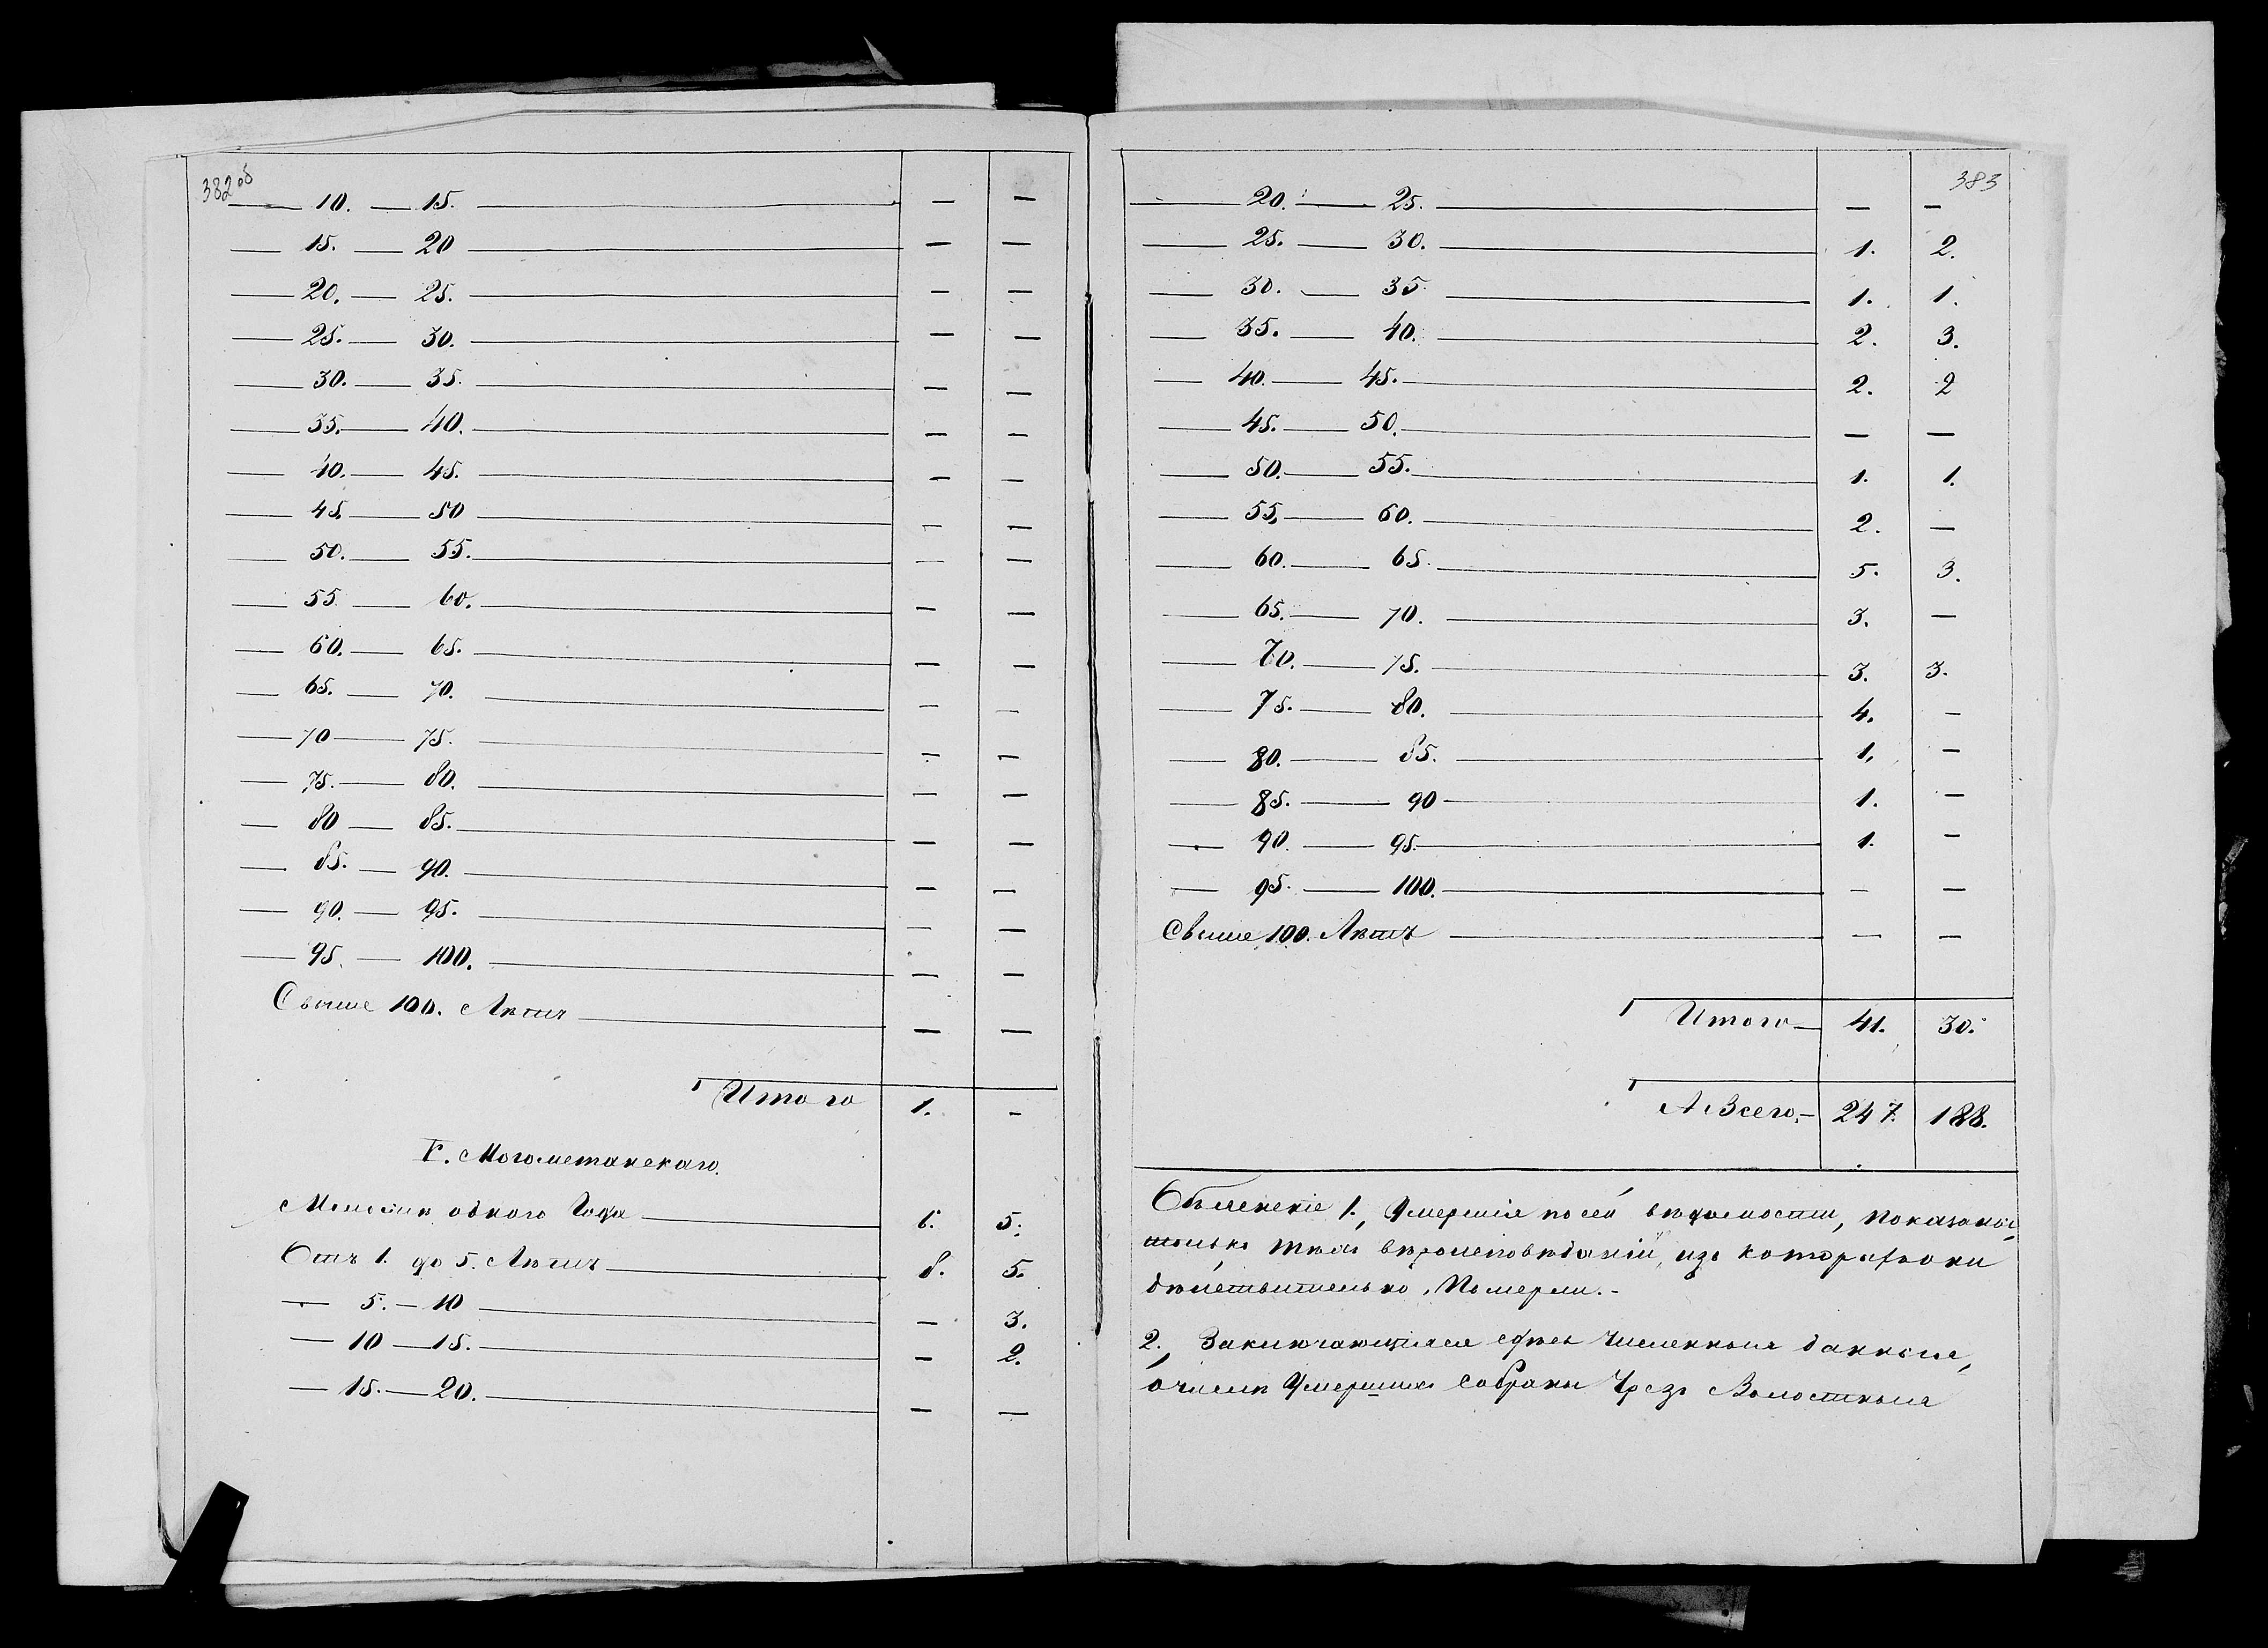 382 об
— 10. — 15. — — —
— 15. — 20 — — —
— 20. — 25. — — —
— 25. — 30. — — —
— 30. — 35. — — —
— 35. — 40. — — —
— 40. — 45. — — —
— 45. — 50 — — —
— 50. — 55. — — —
— 55 — 60. — — —
— 60. — 65. — — —
— 65. — 70. — — —
— 70 — 75. — — —
— 75. — 80. — — —
— 80 — 85. — — —
— 85. — 90. — — —
— 90. — 95. — — —
— 95. — 100. — — —
Свыше 100. Лѣтъ — — —
Итого 1. —
Г. Могометанскаго.
Менѣе одного Года — 6. 5.
Отъ 1. до 5. Лѣтъ — 8. 5.
— 5. — 10 — — 3.
— 10 — 15. — — 2.
— 15. — 20. — — —
383
— 20. — 25. — — —
— 25. — 30. — 1. 2.
— 30. — 35. — 1. 1.
— 35. — 40. — 2. 3.
— 40. — 45. — 2. 2
— 45. — 50. — — —
— 50. — 55. — 1. 1.
— 55. — 60. — 2. —
— 60. — 65. — 5. 3.
— 65. — 70. — 3. —
— 70. — 75. — 3. 3.
— 75. — 80. — 4. —
— 80. — 85. — 1. —
— 85. — 90 — 1. —
— 90. — 95. — 1. —
— 95. — 100. — — —
Свыше 100. Лѣтъ — — —
Итого — 41. 30.
А Всего. — 247. 188.
1., Умершіе по сей вѣдомости, показаны
только тѣхъ вѣроисповѣданій, изъ которыхъ они
дѣйствительно Померли. -
2., Заключающіяся здѣсь численныя данныя,
о числѣ Умершихъ собраны Чрезъ Волостныя